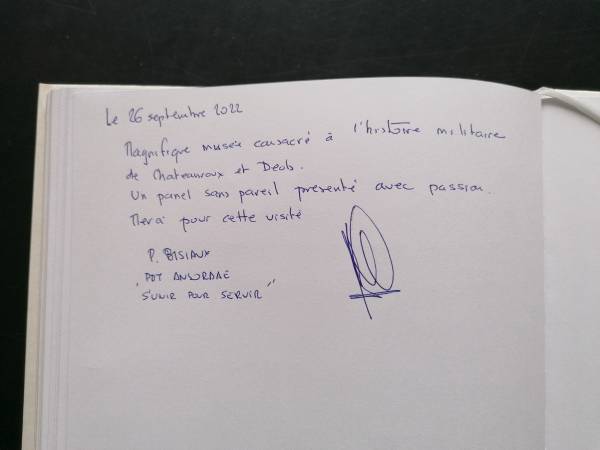 Le 26 septembre 2022
Magnifique musée consacré à l'histoire militaire
de Chateauroux et Deols.
Un panel sans pareil présenté avec passion.
Merci pour cette visite
P. BISIAUX
PDT ANSORDAE
"S'UNIR POUR SERVIR"